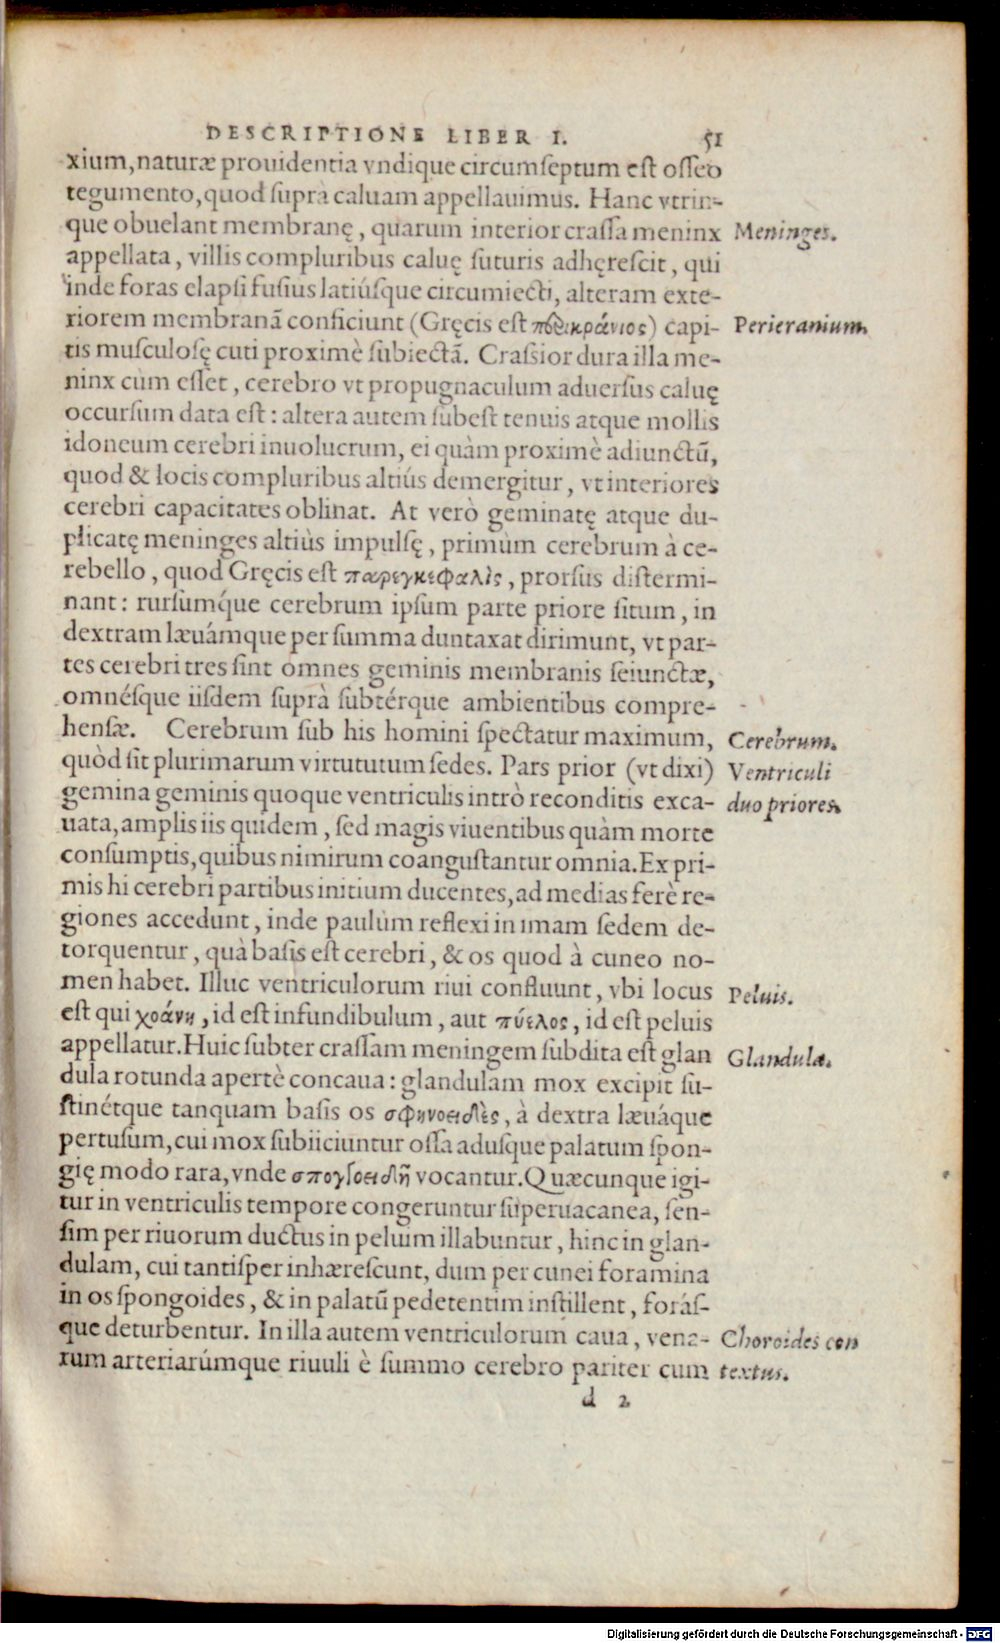 DESCRIPTIONE LIBER I. 51
xium, naturæ prouidentia vndique circumseptum est osseo
tegumento, quod suprà caluam appellauimus. Hanc vtrin-
que obuelant membranę, quarum interior crassa meninx
Meninges.
appellata, villis compluribus caluę suturis adhęrescit, qui
inde foras elapsi fusius latiúsque circumiecti, alteram exte-
riorem membranā conficiunt (Gręcis est περικράνιος) capi-
Pericranium.
tis musculosę cuti proximè subiectā. Crassior dura illa me-
ninx cùm esset, cerebro vt propugnaculum aduersus caluę
occursum data est: altera autem subest tenuis atque mollis
idoneum cerebri inuolucrum, ei quàm proximè adiunctū,
quod & locis compluribus altiús demergitur, vt interiores
cerebri capacitates oblinat. At verò geminatę atque du-
plicatę meninges altiùs impulsę, primùm cerebrum à ce-
rebello, quod Gręcis est παρεγκεφαλὶς, prorsus distermi-
nant: rursumq́ue cerebrum ipsum parte priore situm, in
dextram læuámque per summa duntaxat dirimunt, vt par-
tes cerebri tres sint omnes geminis membranis seiunctæ,
omnésque iisdem suprà subtérque ambientibus compre-
hensæ. Cerebrum sub his homini spectatur maximum,
Cerebrum.
quòd sit plurimarum virtututum sedes. Pars prior (vt dixi)
Ventriculi
gemina geminis quoque ventriculis intrò reconditis exca-
duo priores.
uata, amplis iis quidem, sed magis viuentibus quàm morte
consumptis, quibus nimirum coangustantur omnia. Ex pri-
mis hi cerebri partibus initium ducentes, ad medias ferè re-
giones accedunt, inde paulùm reflexi in imam sedem de-
torquentur, quà basis est cerebri, & os quod à cuneo no-
men habet. Illuc ventriculorum riui confluunt, vbi locus
Peluis.
est qui χοάνη, id est infundibulum, aut πύελος, id est peluis
appellatur. Huic subter crassam meningem subdita est glan
Glandula.
dula rotunda apertè concaua: glandulam mox excipit su-
stinétque tanquam basis os σφηνοειδὲς, à dextra læuáque
pertusum, cui mox subiiciuntur ossa adusque palatum spon-
gię modo rara, vnde σπογγοειδῆ vocantur. Quæcunque igi-
tur in ventriculis tempore congeruntur superuacanea, sen-
sim per riuorum ductus in peluim illabuntur, hinc in glan-
dulam, cui tantisper inhærescunt, dum per cunei foramina
in os spongoides, & in palatū pedetentim instillent, forás-
que deturbentur. In illa autem ventriculorum caua, vena-
Choroides con
rum arteriarúmque riuuli è summo cerebro pariter cum
textus.
d 2
Digitalisierung gefördert durch die Deutsche Forschungsgemeinschaft - DFG